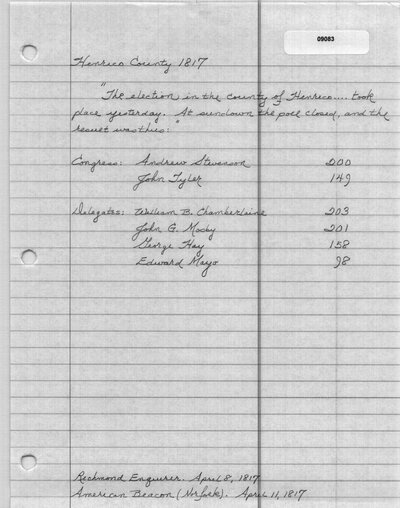 09083
Henrico County 1817
"The election in the county of Henrico.... took
place yesterday. At sundown the poll closed, and the
result was this:
Congress: Andrew Stevenson 200
John Tyler 149
Delegates: William B. Chamberlaine 203
John G. Mosby 201
George Hay 158
Edward Mayo 98
Richmond Enquirer. April 8, 1817
American Beacon (Norfolk). April 11, 1817